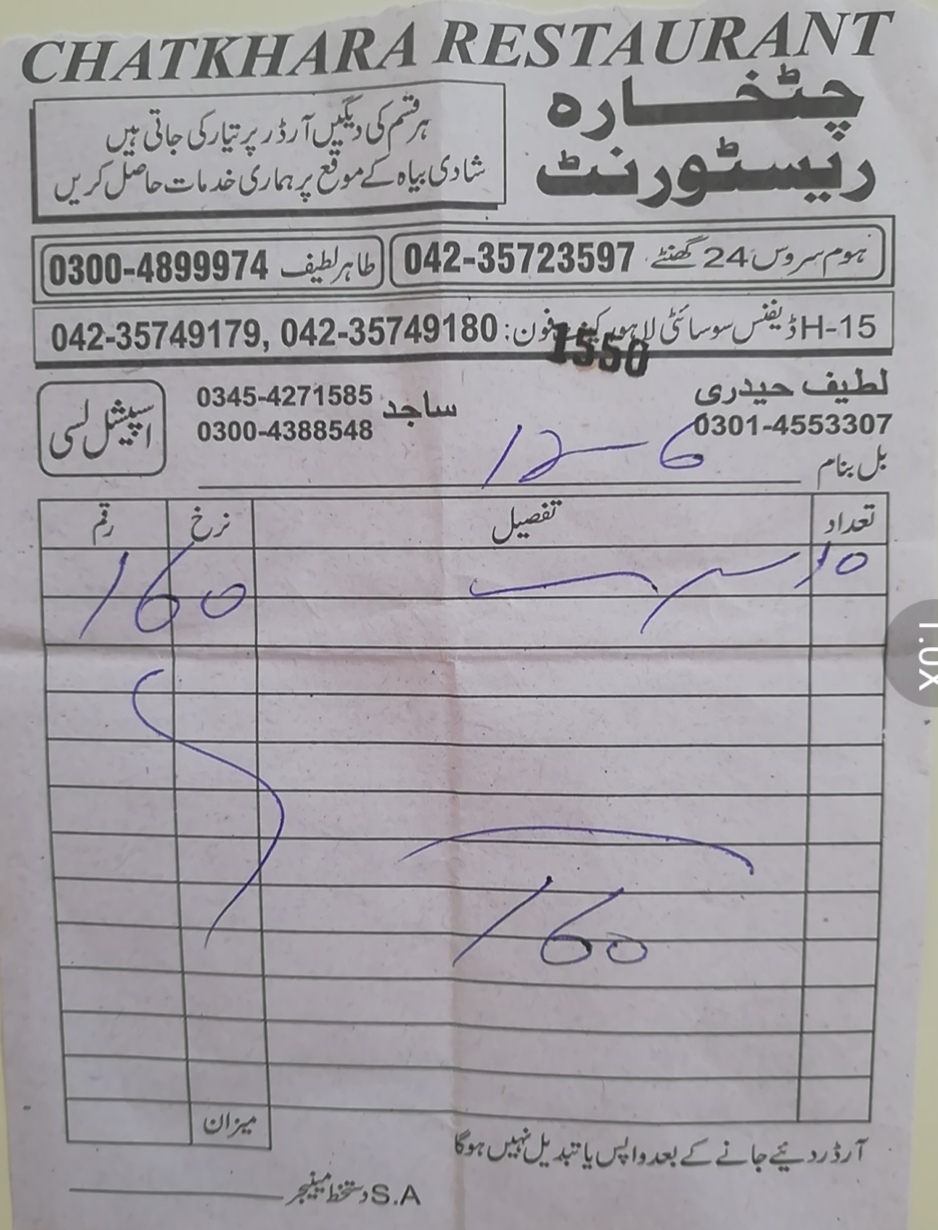 CHATKHARA RESTAURANT
چٹخارہ
ریسٹورنٹ
ہر قسم کی دیگیں آرڈر پر تیار کی جاتی ہیں
شادی بیاہ کے موقع پر ہماری خدمات حاصل کریں
ہوم سروس 24 گھنٹے 042-35723597
طاہر لطیف 0300-4899974
15-H ڈیفنس سوسائٹی لاہور کینٹ فون: 042-35749179, 042-35749180
1550
لطیف حیدری
0301-4553307
ساجد 0345-4271585
0300-4388548
اسپیشل لسی
بل بنام 12-6
تعداد تفصیل نرخ رقم
10 160
160
میزان
آرڈر دئیے جانے کے بعد واپس یا تبدیل نہیں ہوگا
دستخط مینیجر S.A
1.0x